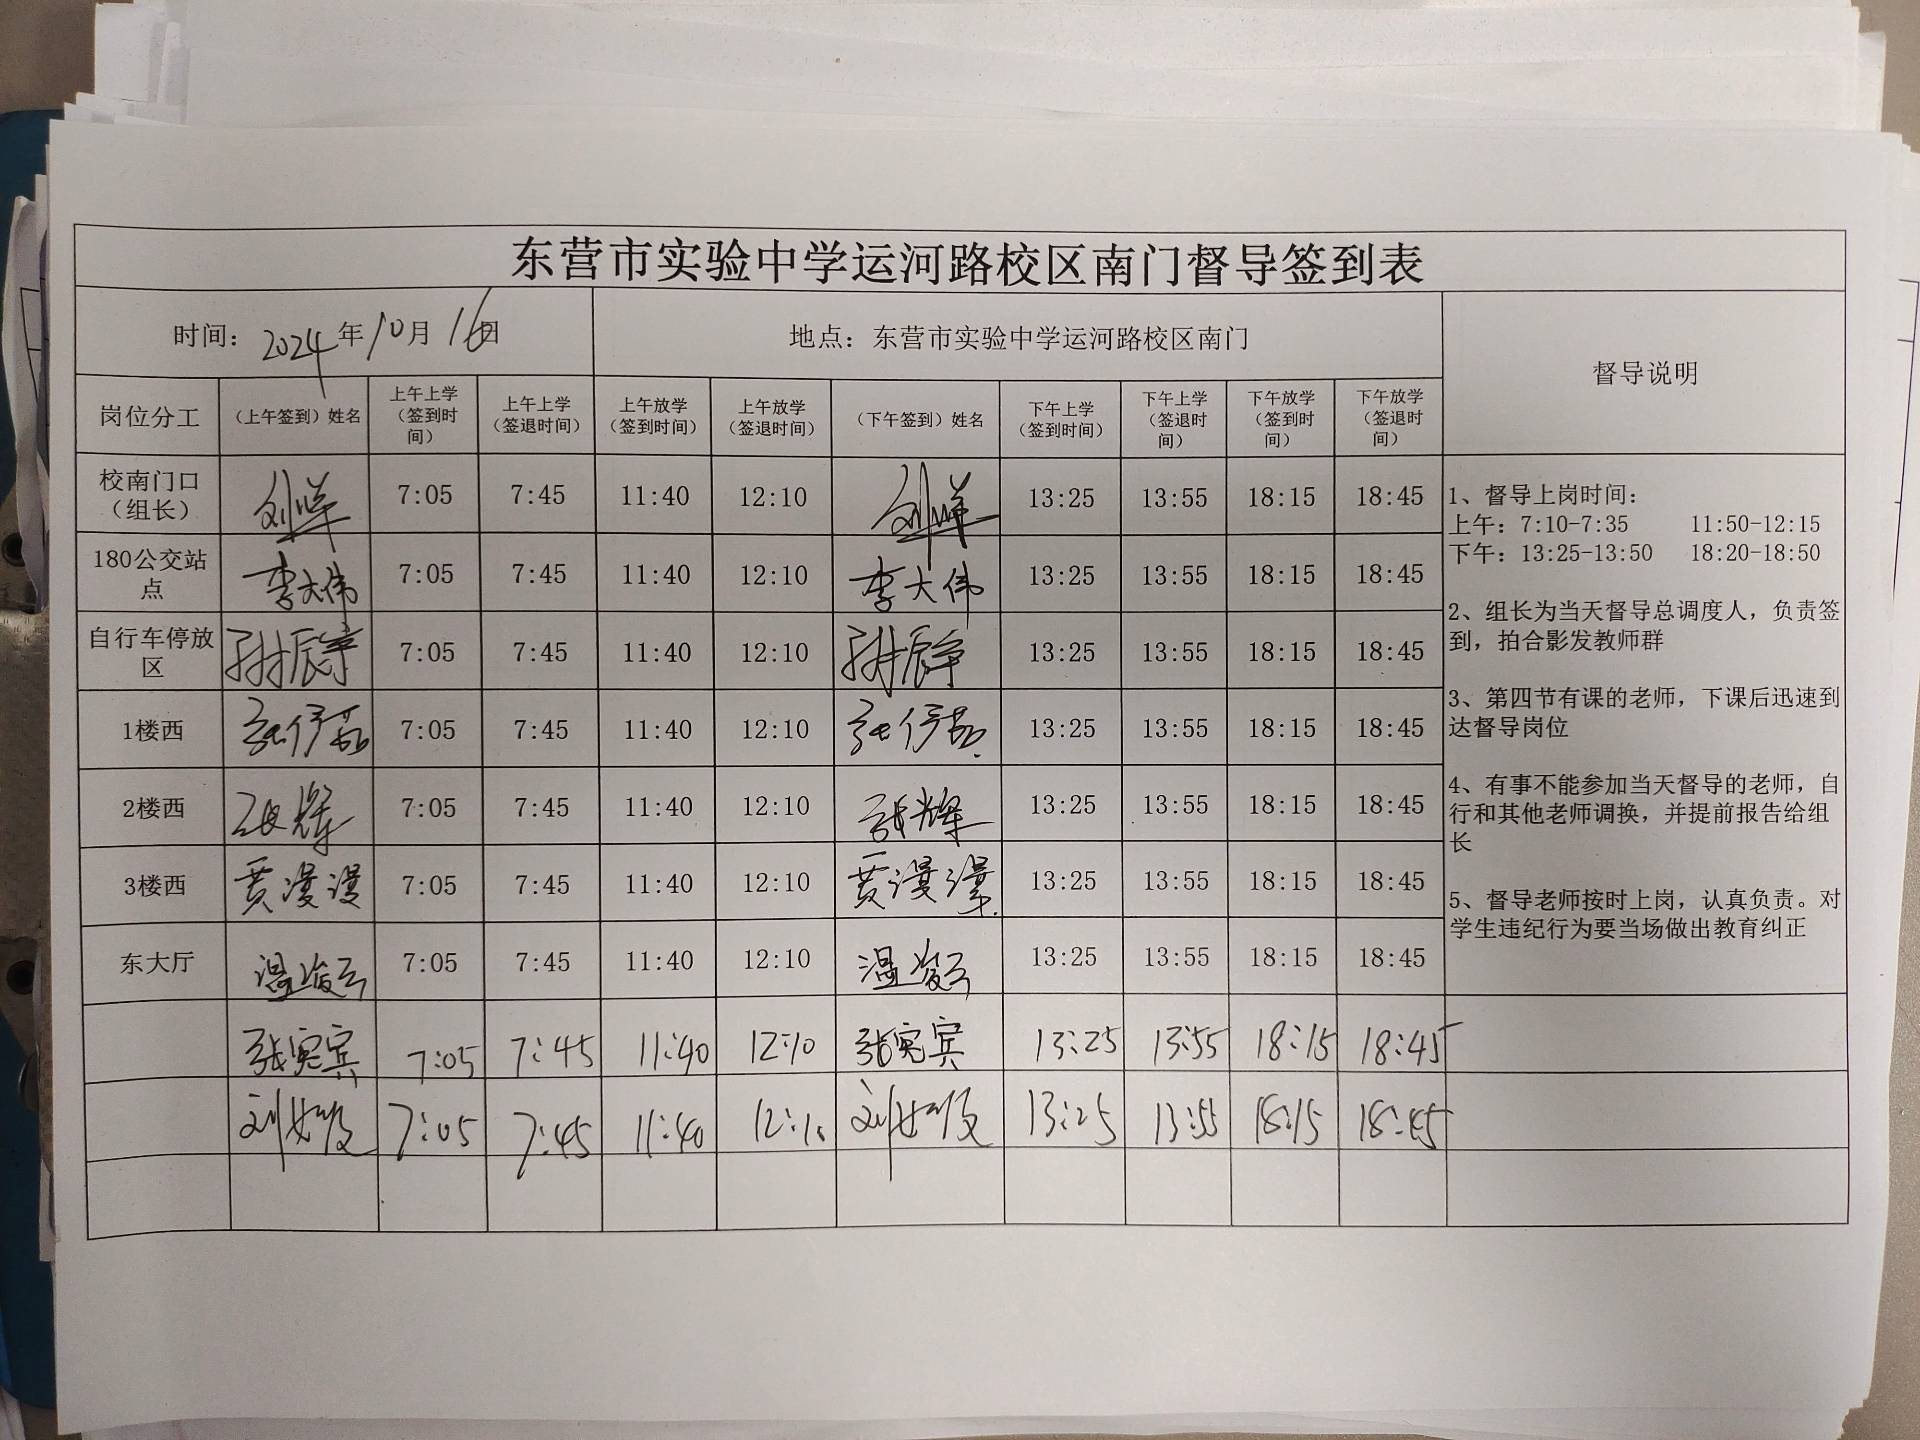 东营市实验中学运河路校区南门督导签到表
时间：2024年10月16日
地点：东营市实验中学运河路校区南门
督导说明
岗位分工 （上午签到）姓名 上午上学（签到时间） 上午上学（签退时间） 上午放学（签到时间） 上午放学（签退时间） （下午签到）姓名 下午上学（签到时间） 下午上学（签退时间） 下午放学（签到时间） 下午放学（签退时间）
校南门口（组长） 7:05 7:45 11:40 12:10 13:25 13:55 18:15 18:45
180公交站点 李大伟 7:05 7:45 11:40 12:10 李大伟 13:25 13:55 18:15 18:45
自行车停放区 7:05 7:45 11:40 12:10 13:25 13:55 18:15 18:45
1楼西 7:05 7:45 11:40 12:10 13:25 13:55 18:15 18:45
2楼西 张辉 7:05 7:45 11:40 12:10 张辉 13:25 13:55 18:15 18:45
3楼西 贾漫漫 7:05 7:45 11:40 12:10 贾漫漫 13:25 13:55 18:15 18:45
东大厅 7:05 7:45 11:40 12:10 13:25 13:55 18:15 18:45
张宪宾 7:05 7:45 11:40 12:10 张宪宾 13:25 13:55 18:15 18:45
7:05 7:45 11:40 12:10 13:25 13:55 18:15 18:45
1、督导上岗时间：
上午：7:10-7:35 11:50-12:15
下午：13:25-13:50 18:20-18:50
2、组长为当天督导总调度人，负责签
到，拍合影发教师群
3、第四节有课的老师，下课后迅速到
达督导岗位
4、有事不能参加当天督导的老师，自
行和其他老师调换，并提前报告给组
长
5、督导老师按时上岗，认真负责。对
学生违纪行为要当场做出教育纠正